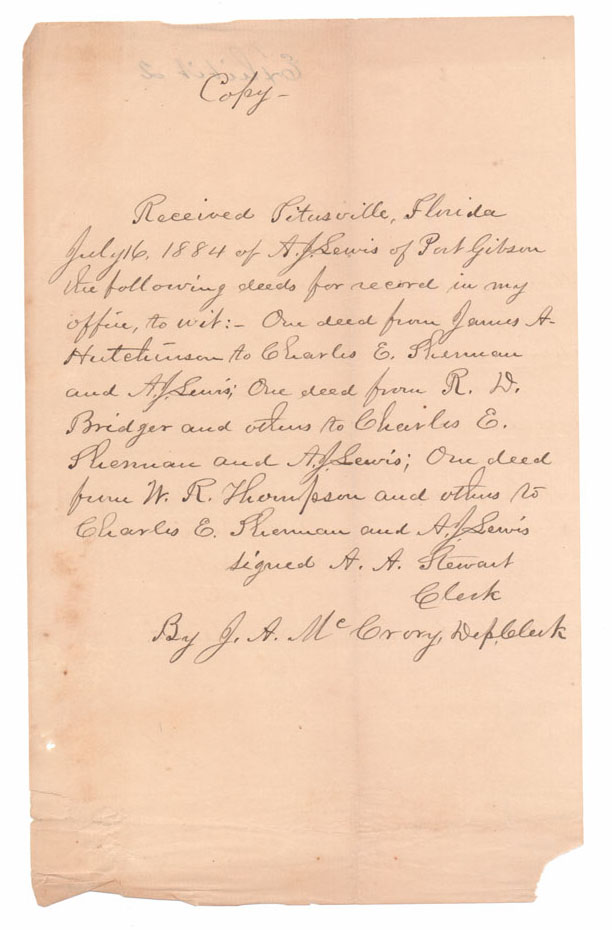 Exhibit 2
Copy -
Received Titusville, Florida
July 16, 1884 of A.J. Lewis of Port Gibson
the following deeds for record in my
office, to wit:- One deed from James A-
Hutchinson to Charles E. Sherman
and A.J. Lewis; One deed from R. D.
Bridger and others to Charles E.
Sherman and A.J. Lewis; One deed
from W. R. Thompson and others to
Charles E. Sherman and A.J. Lewis
signed A. A. Stewart
Clerk
By J. A. McCrory, Dep. Clerk